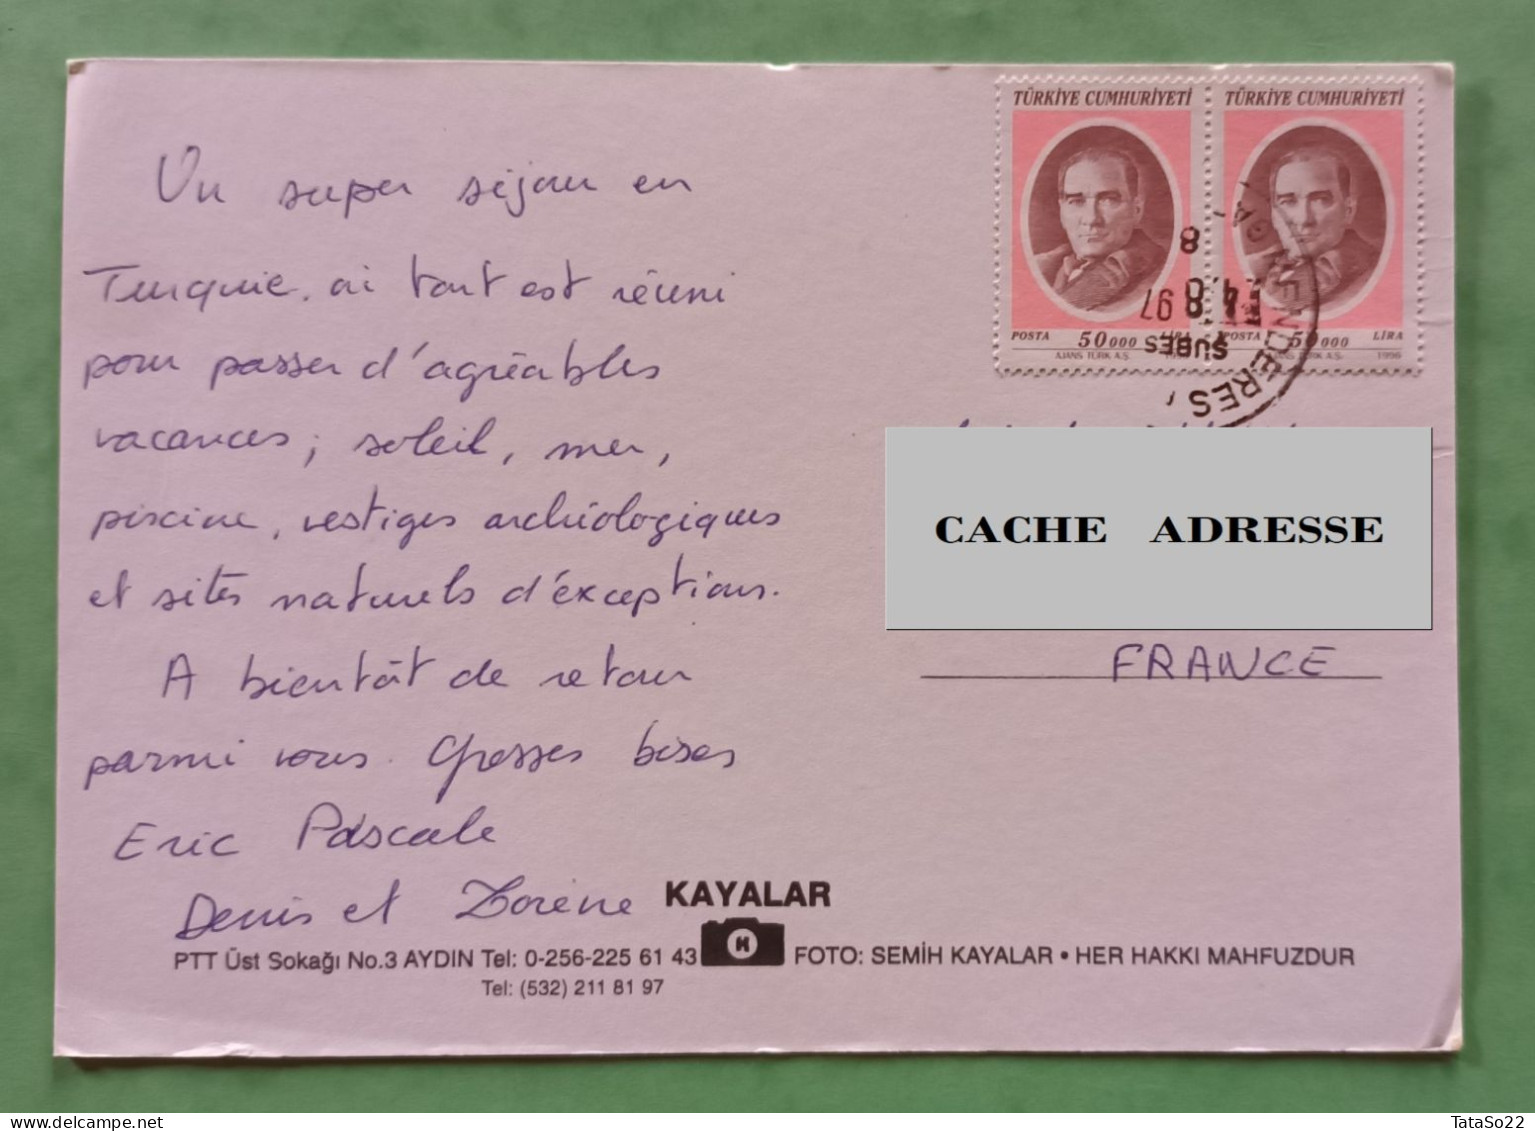 TÜRKİYE CUMHURİYETİ
POSTA 50 000 LİRA
AJANS TÜRK A.Ş.
TÜRKİYE CUMHURİYETİ
POSTA 50 000 LİRA
AJANS TÜRK A.Ş. 1996
8
97
ŞUBES
Un super séjour en
Turquie, où tout est réuni
pour passer d'agréables
vacances ; soleil, mer,
piscine, vestiges archéologiques
et sites naturels d'exceptions.
A bientôt de retour
parmi vous. Grosses bises
Eric Pascale
Denis et
CACHE ADRESSE
FRANCE
KAYALAR
PTT Üst Sokağı No.3 AYDIN Tel: 0-256-225 61 43 FOTO: SEMİH KAYALAR • HER HAKKI MAHFUZDUR
Tel: (532) 211 81 97
TataSo22